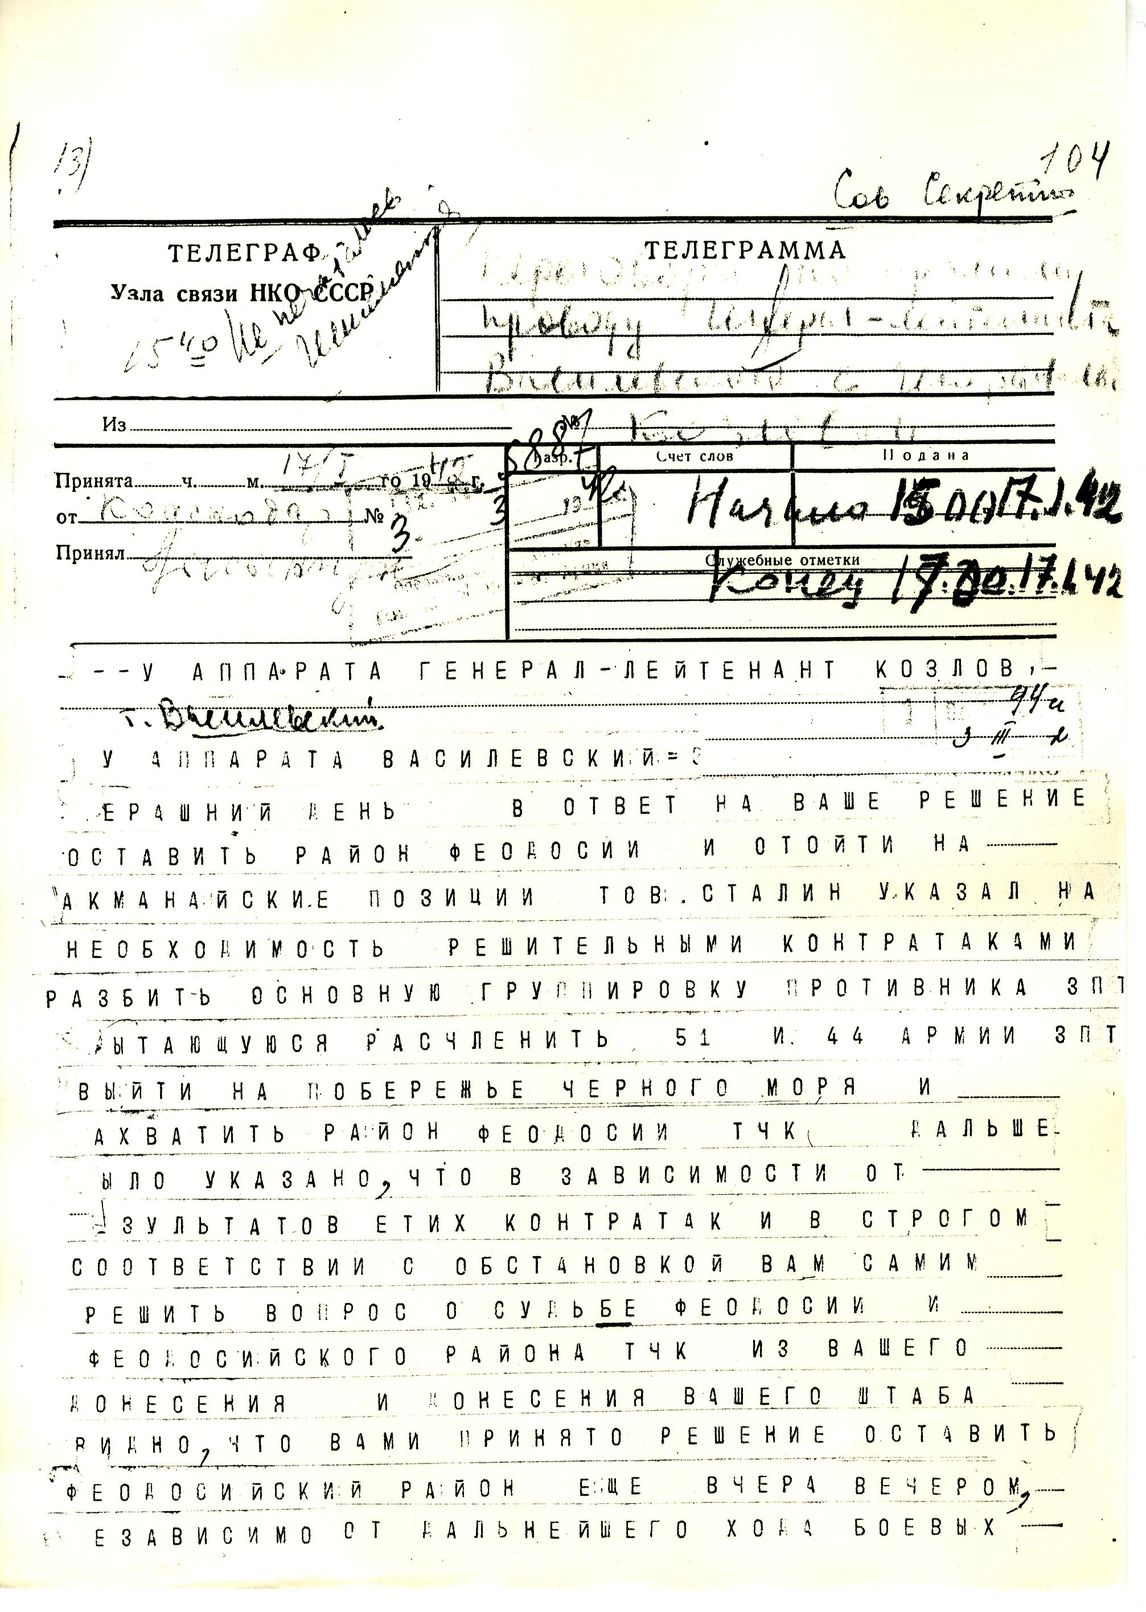 13)
104
Сов Секретно
ТЕЛЕГРАФ
Узла связи НКО СССР
15 40 Не
ТЕЛЕГРАММА
Переговоры по прямому
проводу генерал-лейтенанта
Василевского с генерал
Козловым
Из
Разр.
Счет слов
Подана
Принята ч. м. 17/I го 1942 г.
от Краснодар № 3
Принял
Начало 15 00 17.I.42
Служебные отметки
Конец 17.30.17.I.42
--У АППАРАТА ГЕНЕРАЛ-ЛЕЙТЕНАНТ КОЗЛОВ,-
т. Василевский
94
У АППАРАТА ВАСИЛЕВСКИЙ=
ЕРАШНИЙ ДЕНЬ В ОТВЕТ НА ВАШЕ РЕШЕНИЕ
ОСТАВИТЬ РАЙОН ФЕОДОСИИ И ОТОЙТИ НА
АКМАНАЙСКИЕ ПОЗИЦИИ ТОВ.СТАЛИН УКАЗАЛ НА
НЕОБХОДИМОСТЬ РЕШИТЕЛЬНЫМИ КОНТРАТАКАМИ
РАЗБИТЬ ОСНОВНУЮ ГРУППИРОВКУ ПРОТИВНИКА ЗПТ
ЫТАЮЩУЮСЯ РАСЧЛЕНИТЬ 51 И 44 АРМИИ ЗПТ
ВЫЙТИ НА ПОБЕРЕЖЬЕ ЧЕРНОГО МОРЯ И
АХВАТИТЬ РАЙОН ФЕОДОСИИ ТЧК ДАЛЬШЕ
ЫЛО УКАЗАНО, ЧТО В ЗАВИСИМОСТИ ОТ
ЗУЛЬТАТОВ ЕТИХ КОНТРАТАК И В СТРОГОМ
СООТВЕТСТВИИ С ОБСТАНОВКОЙ ВАМ САМИМ
РЕШИТЬ ВОПРОС О СУДЬБЕ ФЕОДОСИИ И
ФЕОДОСИЙСКОГО РАЙОНА ТЧК ИЗ ВАШЕГО
ДОНЕСЕНИЯ И ДОНЕСЕНИЯ ВАШЕГО ШТАБА
ВИДНО, ЧТО ВАМИ ПРИНЯТО РЕШЕНИЕ ОСТАВИТЬ
ФЕОДОСИЙСКИЙ РАЙОН ЕЩЕ ВЧЕРА ВЕЧЕРОМ,
ЕЗАВИСИМО ОТ ДАЛЬНЕЙШЕГО ХОДА БОЕВЫХ